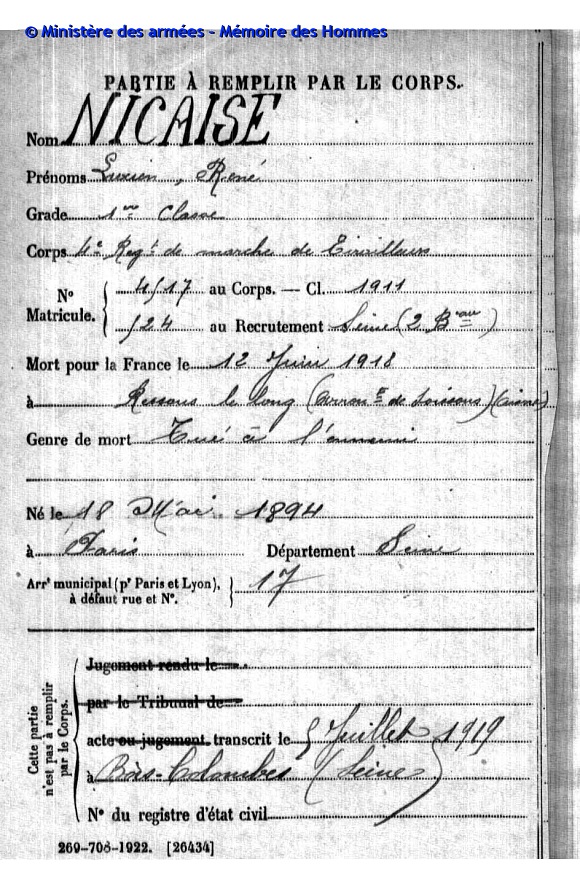 © Ministère des armées - Mémoire des Hommes
PARTIE À REMPLIR PAR LE CORPS.
Nom NICAISE
Prénoms Lucien, René
Grade 1re Classe
Corps 4e Regt de marche de Tirailleurs
No Matricule. 4517 au Corps. — Cl. 1911
524 au Recrutement Seine (2 Bau)
Mort pour la France le 12 Juin 1918
à Ressons le long (Arront de Soissons) (Aisne)
Genre de mort Tué à l'ennemi
Né le 18 Mai 1894
à Paris Département Seine
Arrt municipal (pr Paris et Lyon), à défaut rue et No. 17
Cette partie n'est pas à remplir par le Corps.
Jugement rendu le
par le Tribunal de
acte ou jugement transcrit le 5 Juillet 1919
à Bois-Colombes (Seine)
No du registre d'état civil
269-708-1922. [26434]